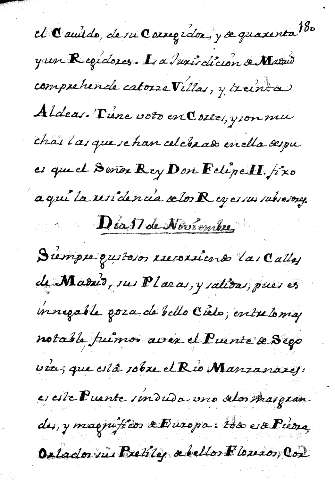 180
el Cavildo, de su Corregidor, y de quarenta
y un Regidores. La Jurisdicion de Madrid
comprehende catorze Villas, y treinta
Aldeas. Tiene voto en Cortes, y son mu
chas las que se han celebrado en ella despu
es que el Señor Rey Don Felipe II. fixo
aqui la residencia de los Reyes sus subsesores.
Dia 17 de Noviembre.
Siempre gustosos recorriendo las Calles
de Madrid, sus Plazas, y salidas, pues es
innegable goza de bello Cielo; entre lo mas
notable fuimos a ver el Puente de Sego
via; que está sobre el Rio Manzanares:
es este Puente sin duda uno de los mas gran
des, y magnificos de Europa: todo es de Piedra,
Orlados sus Pretiles de bellos Florones, Cor